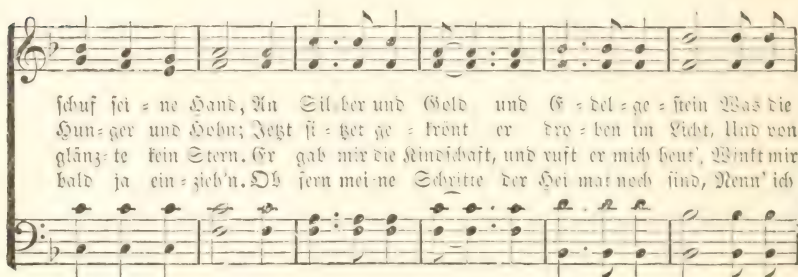 schuf sei = ne Hand, An Sil ber und Gold und E = del = ge = stein Was die
Hun = ger und Hohn; Jetzt si = tzet ge = krönt er dro = ben im Licht, Und von
glänz = te kein Stern. Er gab mir die Kindschaft, und ruft er mich heut', Winkt mir
bald ja ein = zieh'n. Ob fern mei = ne Schritte der Hei mat noch sind, Nenn' ich